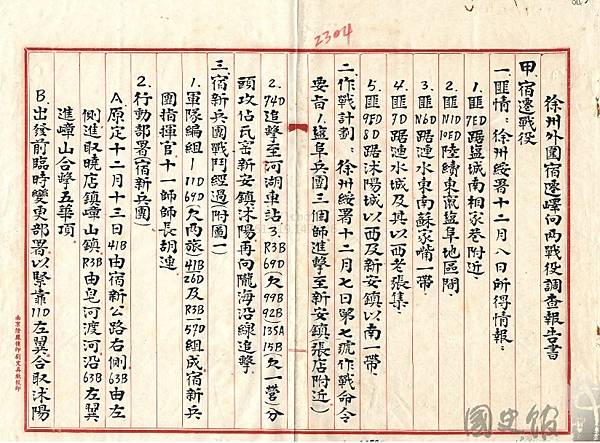 2304
徐州外圍宿遷嶧向兩戰役調查報告書
甲、宿遷戰役
一、匪情:徐州綏署十二月八日所得情報:
1. 匪7ED踞盐城南相家巷附近。
2. 匪N1D 10ED陸續東竄盐阜地區間。
3. 匪N6D踞漣水東南蘇家嘴一帶。
4. 匪7D踞漣水城及其以西老張集。
5. 匪9ED 8D踞沭陽城以西及新安鎮以南一帶。
二、作戰計劃:徐州綏署十二月七日第七號作戰命令
要旨 1. 盐阜兵團三個師進擊至新安鎮(張店附近)
2. 74D追擊至河湖車站 3. R3B 69D(欠99B 92B 135A 15B(欠一營)分
頭攻佔瓦窑新安鎮沭陽再向隴海沿線追擊
三、宿新兵團戰鬥經過附圖一
1. 軍隊編組-11D 69D欠兩旅(41B 26D及R3B)-57D組成宿新兵
團指揮官十一師師長胡璉
2. 行動部署(宿新兵團)
A 原定十二月十三日41B由宿新公路右側63B由左
側進取曉店鎮嶂山鎮R3B由皂河渡河沿63B左翼
進嶂山合擊五華頂
B 出發前臨時變更部署以緊靠11D左翼合取沭陽
國史館